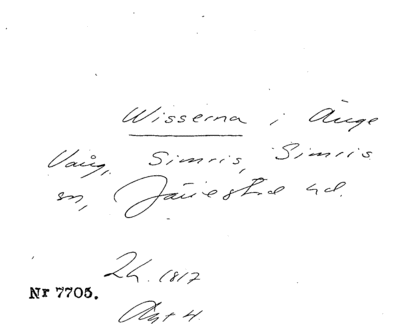 Wisserna i Änge
Vång, Simris, Simris
sn, Järrestad hd.
2 h. 1817
Nr 7705.
Akt 4.